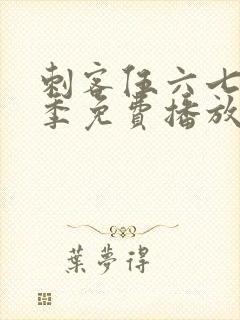 刺客伍六七
季免費播放
葉夢得